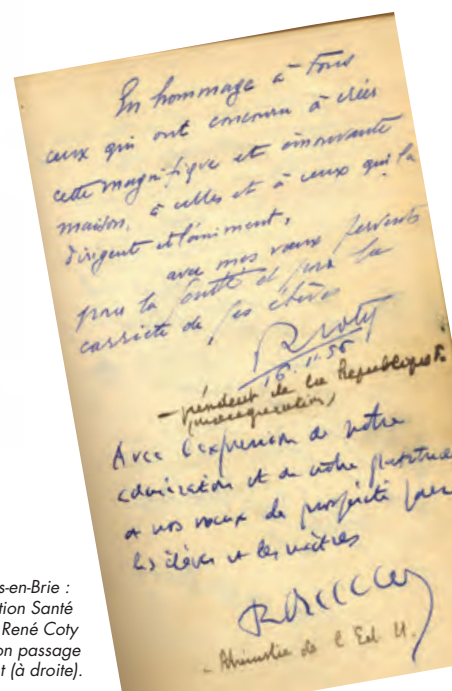 En hommage à Tous
ceux qui ont concouru à créer
cette magnifique et émouvante
maison, à celles et à ceux qui la
dirigent et l'animent,
avec mes vœux fervents
pour la santé et pour la
carrière de ses élèves
R Coty
16.11.55
- président de la République F.
(inauguration)
Avec l'expression de notre
admiration et de notre gratitude
et nos vœux de prospérité pour
les élèves et les maîtres
- Ministre de l'Ed N.
s-en-Brie :
tion Santé
René Coty
on passage
t (à droite).